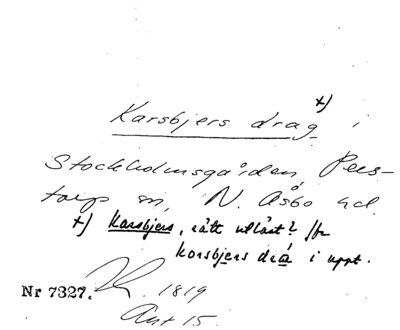 Karsbjers drag x) i
Stockholmsgården, Pers-
torp sn, N. Åsbo hd.
x) Karsbjers, rätt utläst? Jfr
korsbjers drá i uppt.
Nr 7327. 1819
Art 15.